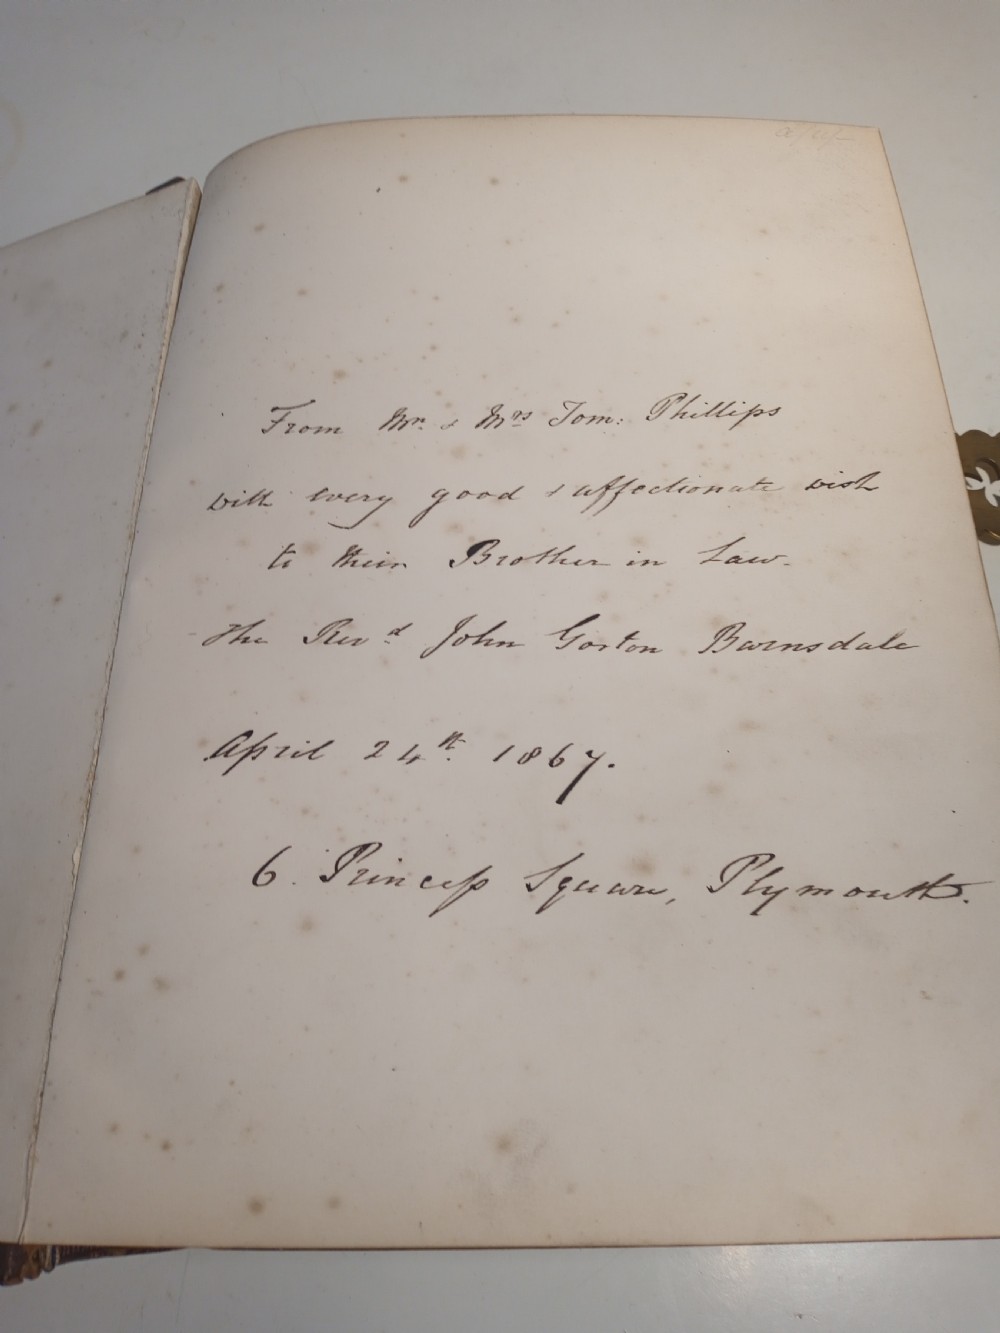 From Mr. & Mrs Tom: Phillips
with every good & affectionate wish
to their Brother in Law.
The Revd. John Gorton Barnsdale
April 24th. 1867.
6. Princess Square, Plymouth.